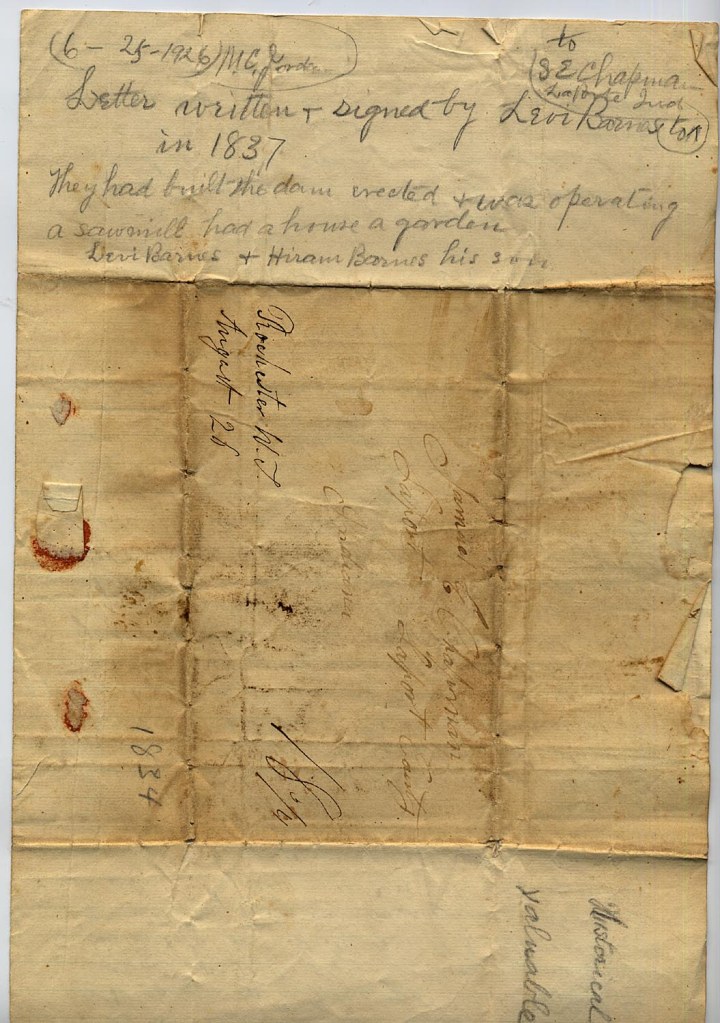 (6 - 25-1926) M.C. Jordan
to
S E Chapman
Laporte Ind
Letter written + signed by Levi Barnes to
in 1837
They had built the dam erected + was operating
a sawmill had a house a garden
Levi Barnes + Hiram Barnes his son
Rochester W.T.
August 26
James E Chapman
Laport Laport County
Indiana
1834
Historical
valuable